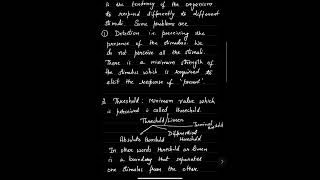 is the tendency of the organism
to respond differently to different
stimuli. Some problems are
① Detection i.e. perceiving the
presence of the stimulus. We
do not perceive all the stimuli.
There is a minimum strength of
the stimulus which is required to
elicit the response of "present".
2. Threshold: Minimum value which
is perceived is called threshold.
Threshold/Limen
Terminal threshold
Differential
Absolute threshold threshold
In other words threshold or limen
is a boundary that separates
one stimulus from the other.